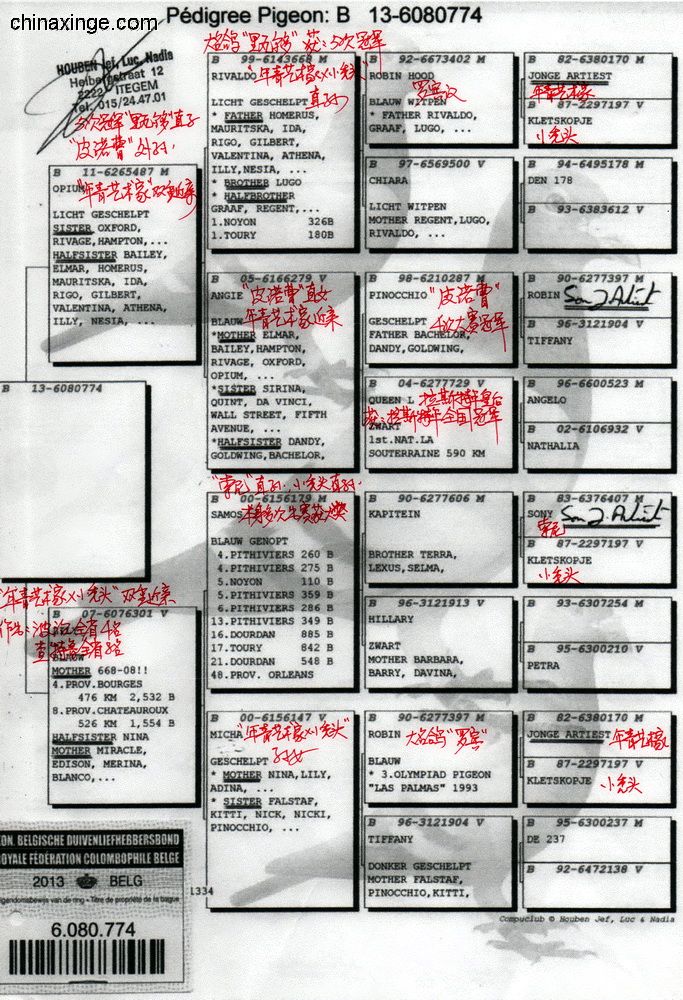 chinaxinge.com
Pédigree Pigeon: B 13-6080774
HOUBEN Jef, Luc, Nadia
ITEGEM
Tel. 015/24.47.01
B 11-6265487 M
OPIUM
LICHT GESCHELPT
SISTER OXFORD,
RIVAGE,HAMPTON,...
HALFSISTER BAILEY,
ELMAR, HOMERUS,
MAURITSKA, IDA,
RIGO, GILBERT,
VALENTINA, ATHENA,
ILLY, NESIA, ...
B 13-6080774
"年青艺术家X小秃头"双重近亲
B 07-6076301 V
BLAUW
MOTHER 668-08!!
4.PROV.BOURGES
476 KM 2,532 B
8.PROV.CHATEAUROUX
526 KM 1,554 B
HALFSISTER NINA
MOTHER MIRACLE,
EDISON, MERINA,
BLANCO,...
B 99-6143668 M
RIVALDO
"年青艺术家X小秃头"
LICHT GESCHELPT
* FATHER HOMERUS,
MAURITSKA, IDA,
RIGO, GILBERT,
VALENTINA, ATHENA,
ILLY,NESIA, ...
* BROTHER LUGO
* HALFBROTHER
GRAAF, REGENT,...
1.NOYON 326B
1.TOURY 180B
B 05-6166279 V
ANGIE "皮诺曹"直女
BLAUW 年青艺术家近亲
*MOTHER ELMAR,
BAILEY,HAMPTON,
RIVAGE, OXFORD,
OPIUM, ...
*SISTER SIRINA,
QUINT, DA VINCI,
WALL STREET, FIFTH
AVENUE, ...
*HALFSISTER DANDY,
GOLDWING,BACHELOR,
B 00-6156179 M
SAMOS
BLAUW GENOPT
4.PITHIVIERS 260 B
4.PITHIVIERS 275 B
5.NOYON 110 B
5.PITHIVIERS 359 B
6.PITHIVIERS 286 B
13.PITHIVIERS 349 B
16.DOURDAN 885 B
17.TOURY 842 B
21.DOURDAN 548 B
48.PROV. ORLEANS
B 00-6156147 V
MICHA "年青艺术家X小秃头"
GESCHELPT
* MOTHER NINA,LILY,
ADINA, ...
* SISTER FALSTAF,
KITTI, NICK, NICKI,
PINOCCHIO, ...
B 92-6673402 M
ROBIN HOOD
BLAUW WITPEN
* FATHER RIVALDO,
GRAAF, LUGO, ...
B 97-6569500 V
CHIARA
LICHT WITPEN
MOTHER REGENT,LUGO,
RIVALDO, ...
B 98-6210287 M
PINOCCHIO "皮诺曹"
GESCHELPT
FATHER BACHELOR,
DANDY,GOLDWING,
B 04-6277729 V
QUEEN L
ZWART
1st.NAT.LA
SOUTERRAINE 590 KM
B 90-6277606 M
KAPITEIN
BROTHER TERRA,
LEXUS,SELMA,
B 96-3121913 V
HILLARY
ZWART
MOTHER BARBARA,
BARRY, DAVINA,
B 90-6277397 M
ROBIN 大名鸽"罗宾"
BLAUW
* 3.OLYMPIAD PIGEON
"LAS PALMAS" 1993
B 96-3121904 V
TIFFANY
DONKER GESCHELPT
MOTHER FALSTAF,
PINOCCHIO,KITTI,
B 82-6380170 M
JONGE ARTIEST
年青艺术家
B 87-2297197 V
KLETSKOPJE
小秃头
B 94-6495178 M
DEN 178
B 93-6383612 V
B 90-6277397 M
ROBIN Son J. Artist
B 96-3121904 V
TIFFANY
B 96-6600523 M
ANGELO
B 02-6106932 V
NATHALIA
B 83-6376407 M
SONY Son J. Artist
索尼
B 87-2297197 V
KLETSKOPJE
小秃头
B 93-6307254 M
B 95-6300210 V
PETRA
B 82-6380170 M
JONGE ARTIEST 年青艺术家
B 87-2297197 V
KLETSKOPJE 小秃头
B 95-6300237 M
DE 237
B 92-6472138 V
KON. BELGISCHE DUIVENLIEFHEBBERSBOND
ROYALE FEDERATION COLOMBOPHILE BELGE
2013 BELG
Eigendomsbewijs van de ring - Titre de propriété de la bague
6.080.774
1334
Compuclub © Houben Jef, Luc & Nadia